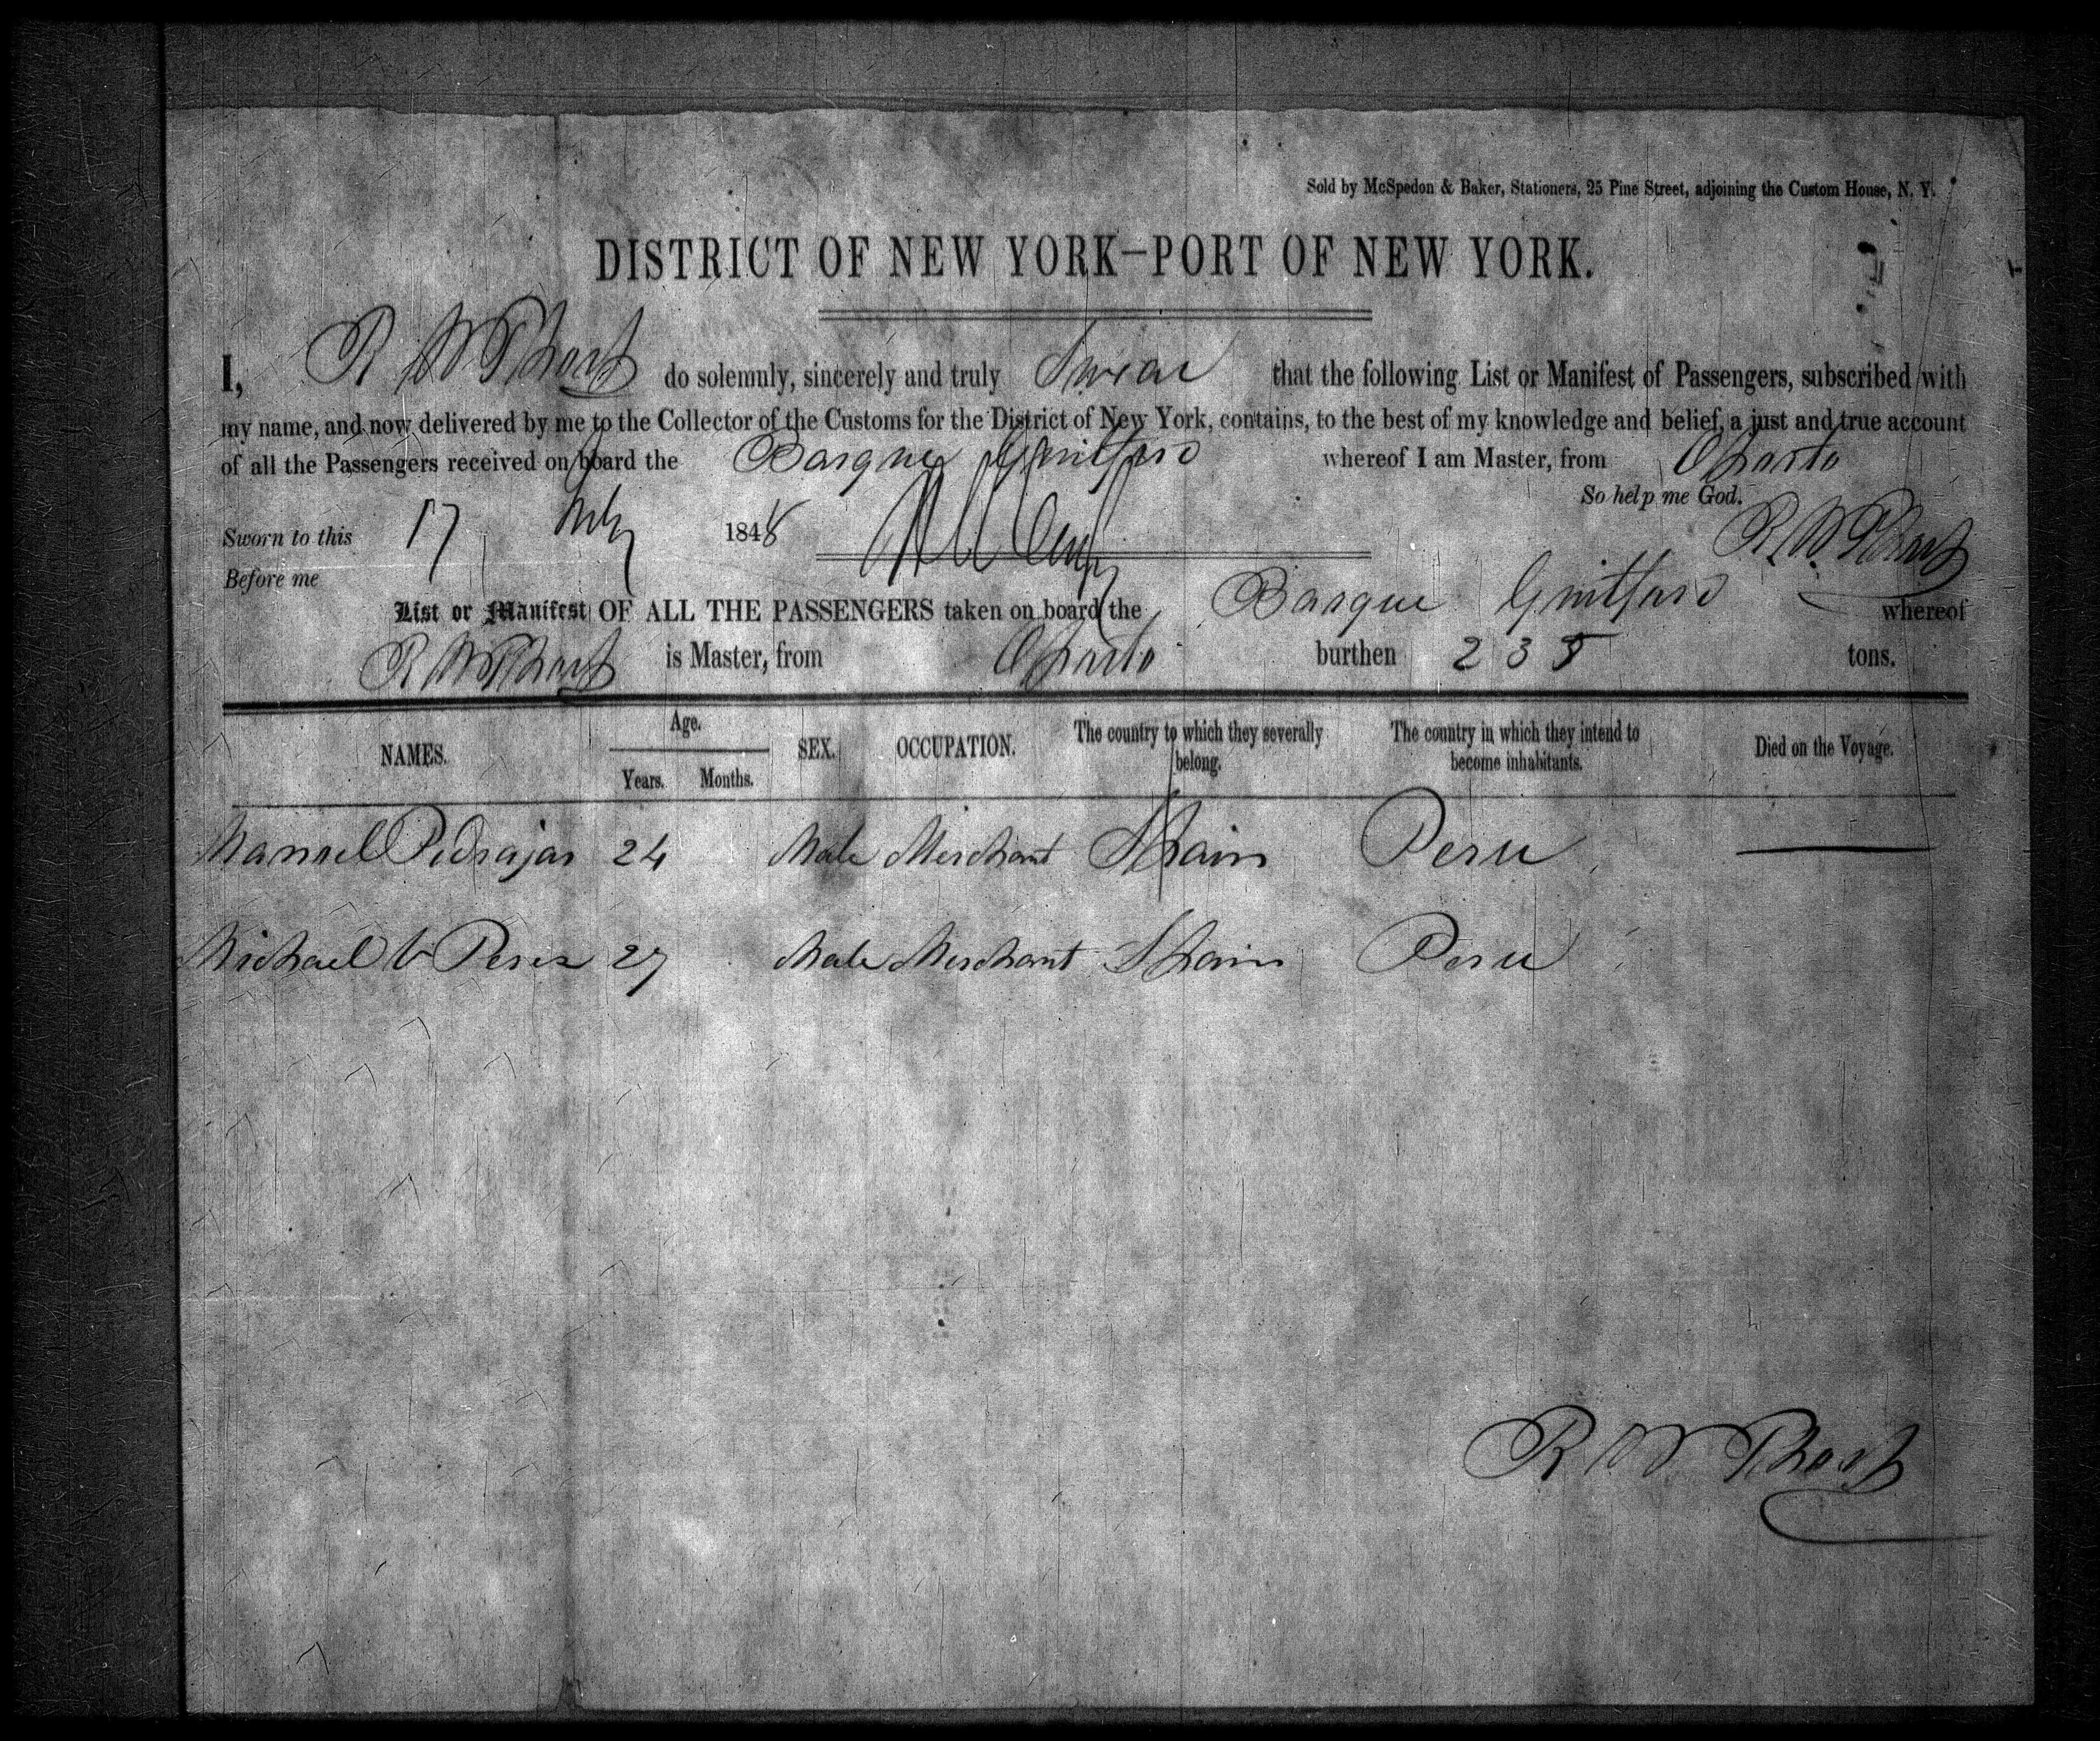 Sold by McSpedon & Baker, Stationers, 25 Pine Street, adjoining the Custom House, N. Y.
DISTRICT OF NEW YORK—PORT OF NEW YORK.
I, R W do solemnly, sincerely and truly Swear that the following List or Manifest of Passengers, subscribed with
my name, and now delivered by me to the Collector of the Customs for the District of New York, contains, to the best of my knowledge and belief, a just and true account
of all the Passengers received on board the Barque whereof I am Master, from Oporto
So help me God.
Sworn to this 17 1848
R W
Before me
List or Manifest OF ALL THE PASSENGERS taken on board the Barque whereof
R W is Master, from Oporto burthen 235 tons.
NAMES. Age. Years. Months. SEX. OCCUPATION. The country to which they severally belong. The country in which they intend to become inhabitants. Died on the Voyage.
Manuel Pedrajas 24 Male Merchant Spain Peru
Michael Peres 27 Male Merchant Spain Peru
R W